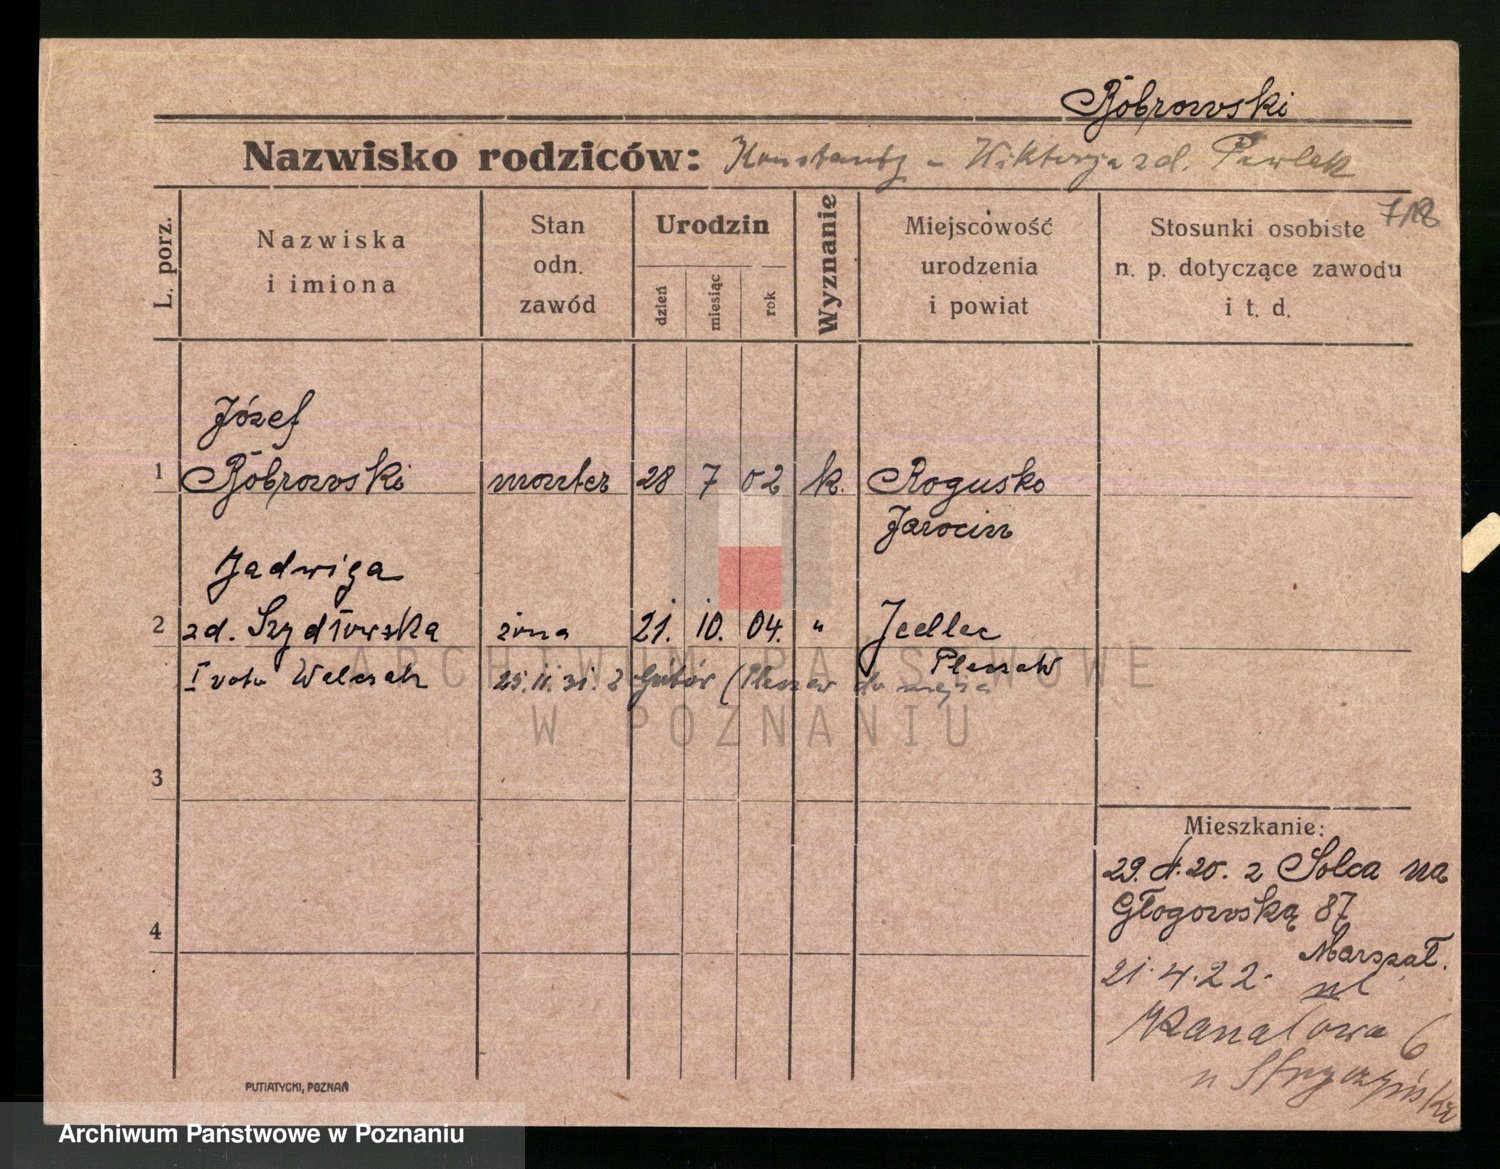 Bobrowski
Nazwisko rodziców: Konstanty - Wiktorja zd. Pawlak
718
L. porz.
Nazwiska
i imiona
Stan
odn.
zawód
Urodzin
dzień
miesiąc
rok
Wyznanie
Miejscowość
urodzenia
i powiat
Stosunki osobiste
n. p. dotyczące zawodu
i t. d.
Józef
1 Bobrowski monter 28 7 02 k. Rogusko
Jarocin
Jadwiga
2 zd. Szydłowska żona 21. 10. 04. " Jedlec
Pleszew
I voto Walczak 25.11.31. z (Pleszew do męża
3
4
Mieszkanie:
29. 20. z Solca na
Głogowską 87
Marszał.
21.4.22. ul
Kanałowa 6
PUTIATYCKI, POZNAŃ
ARCHIWUM PAŃSTWOWE
W POZNANIU
Archiwum Państwowe w Poznaniu